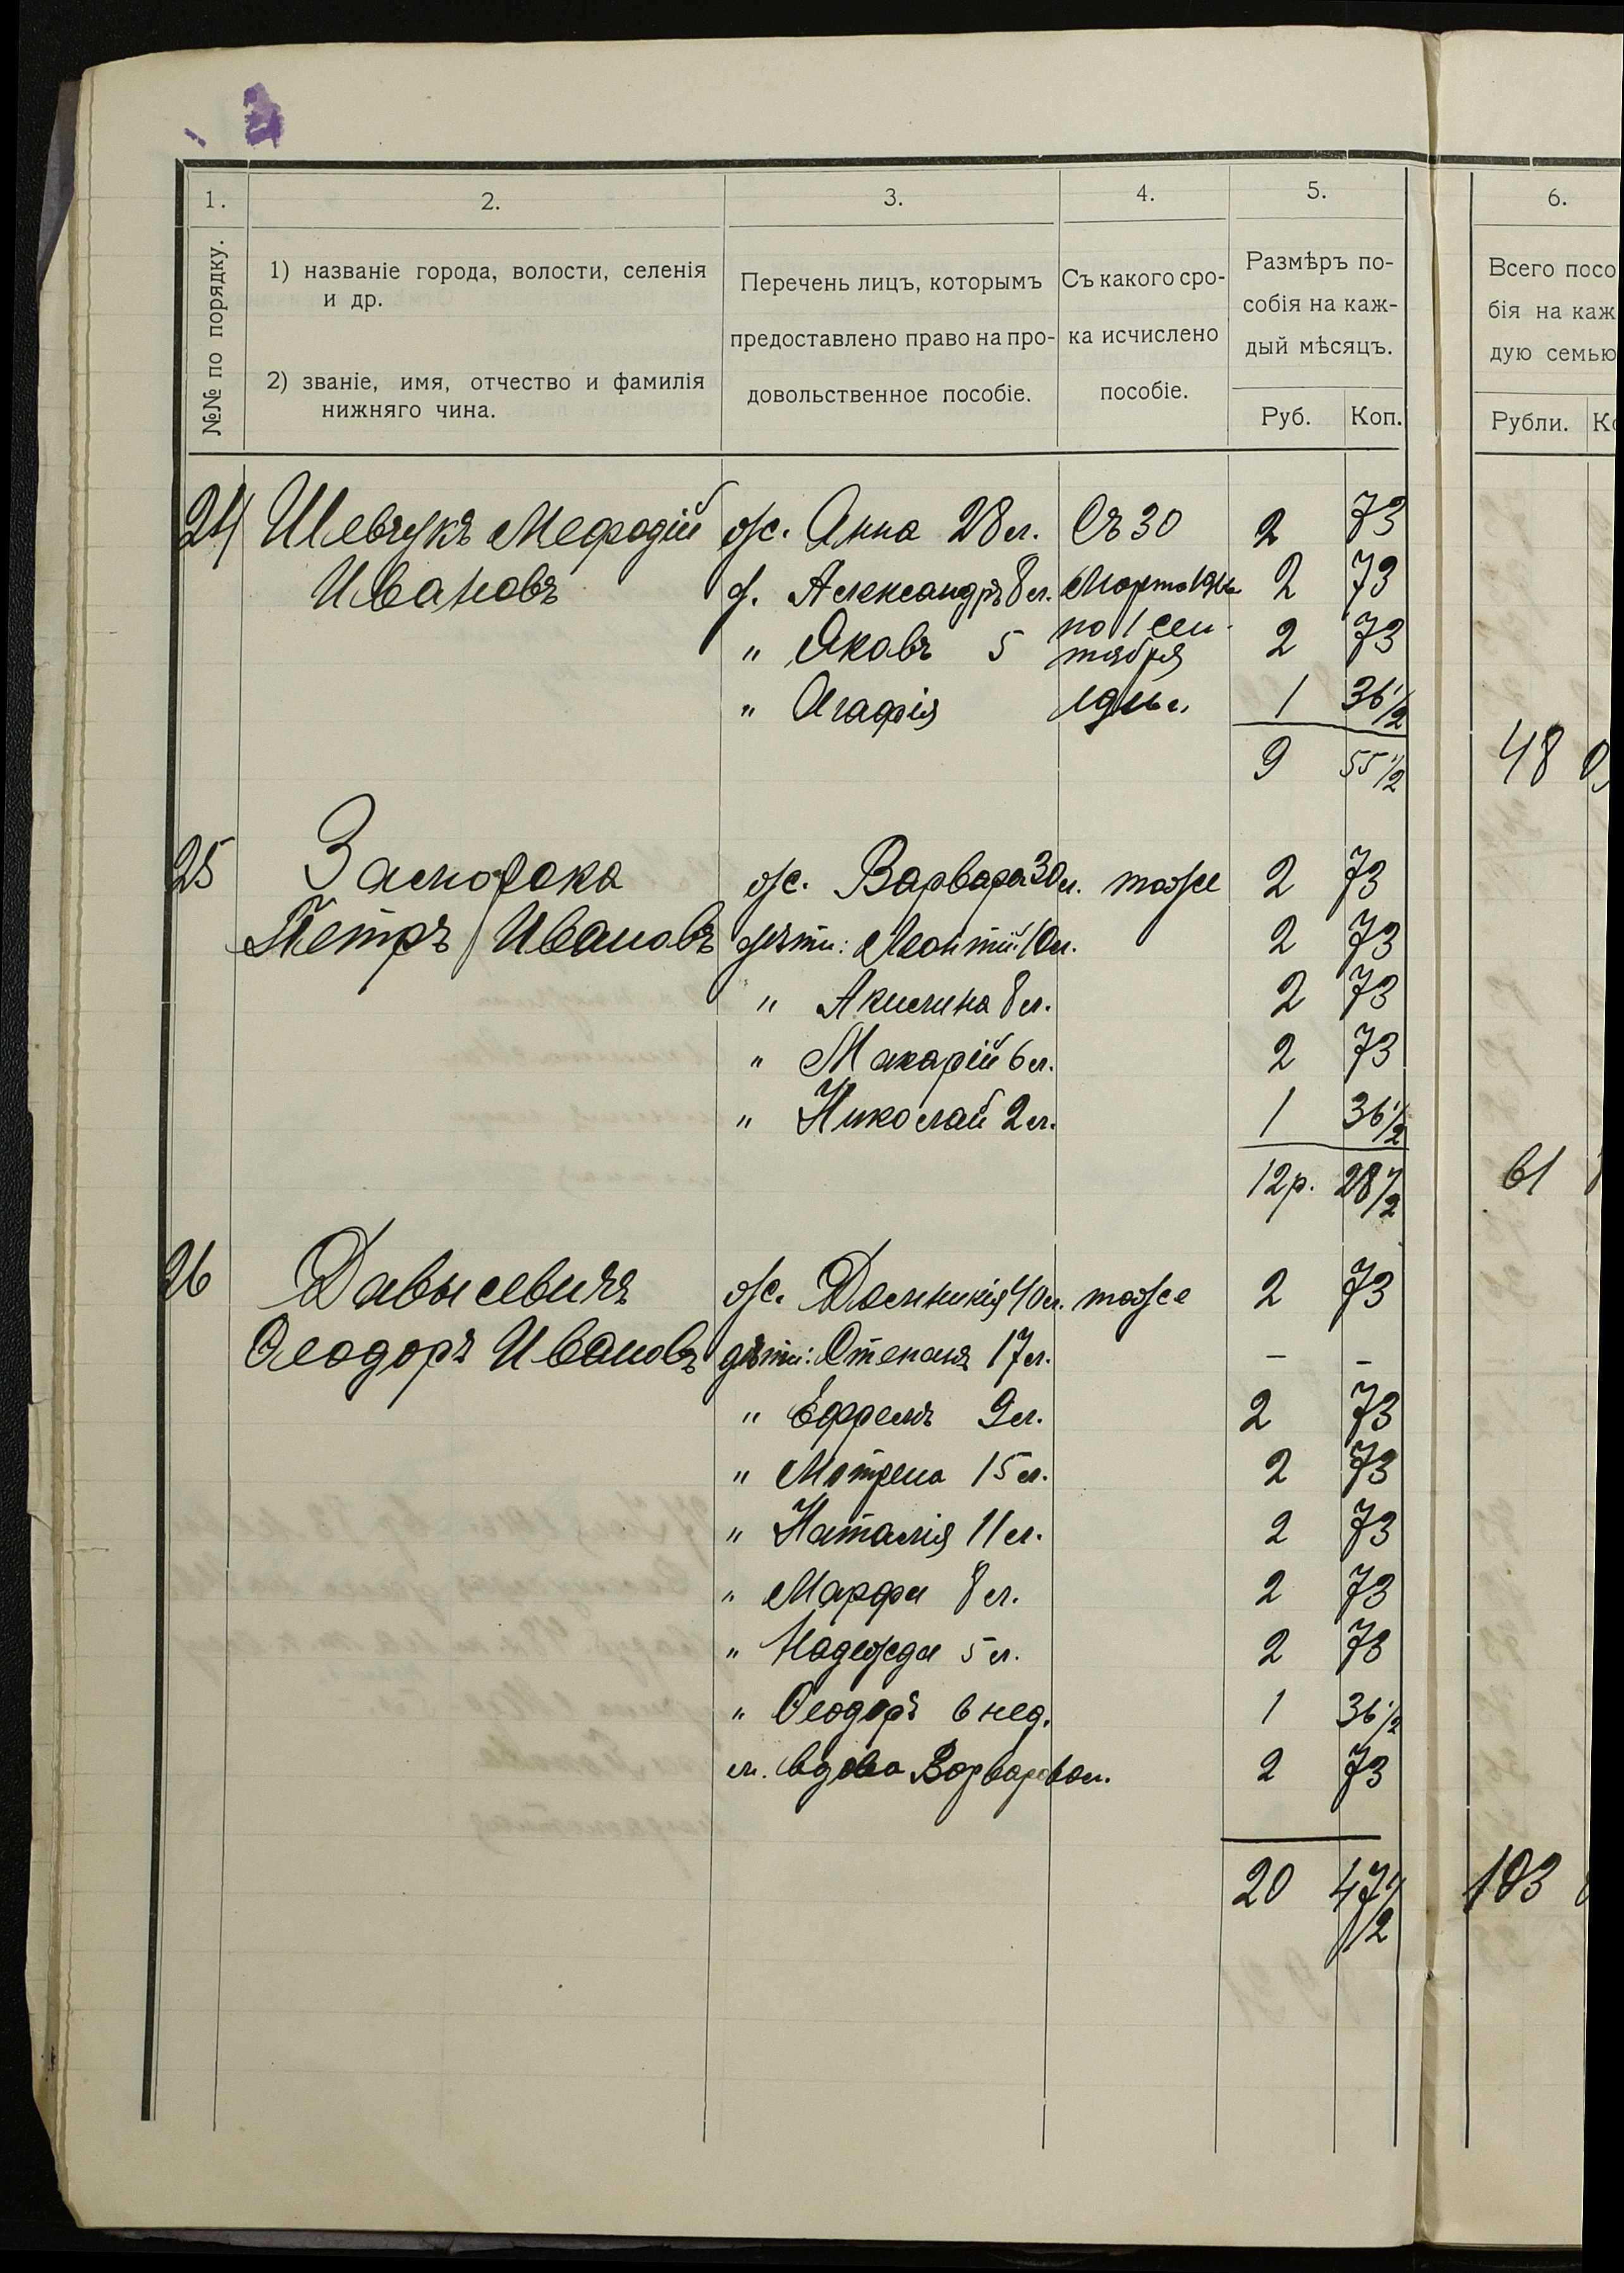 1. 2. 3. 4. 5. 6.
№№ по порядку.
1) названіе города, волости, селенія
и др.
2) званіе, имя, отчество и фамилія
нижняго чина.
Перечень лицъ, которымъ
предоставлено право на про-
довольственное пособіе.
Съ какого сро-
ка исчислено
пособіе.
Размѣръ по-
собія на каж-
дый мѣсяцъ.
Руб. Коп.
Всего посо
бія на каж
дую семью
Рубли. Ко
24 Шевчукъ Мефодій ж. Анна 28 л. Съ 30 2 73
Ивановъ д. Александръ 8 л. Марта 2 73
" Яковъ 5 по 1 сен- 2 73
тября
" Агафія 1 36 1/2
9 55 1/2 48
25 ж. Варвара 30 л. тоже 2 73
Петръ Ивановъ дѣти: Леонтій 10 л. 2 73
" Акилина 8 л. 2 73
" Макарій 6 л. 2 73
" Николай 2 л. 1 36 1/2
12 р. 28 1/2 61
26 ж. Домникія 40 л. тоже 2 73
Ѳеодоръ Ивановъ дѣти: Степанъ 17 л. – –
" Ефремъ 9 л. 2 73
" Мотрена 15 л. 2 73
" Наталія 11 л. 2 73
" Марфа 8 л. 2 73
" Надежда 5 л. 2 73
" Ѳеодоръ 6 нед. 1 36 1/2
м. вдова Варвара 2 73
20 47 1/2 103